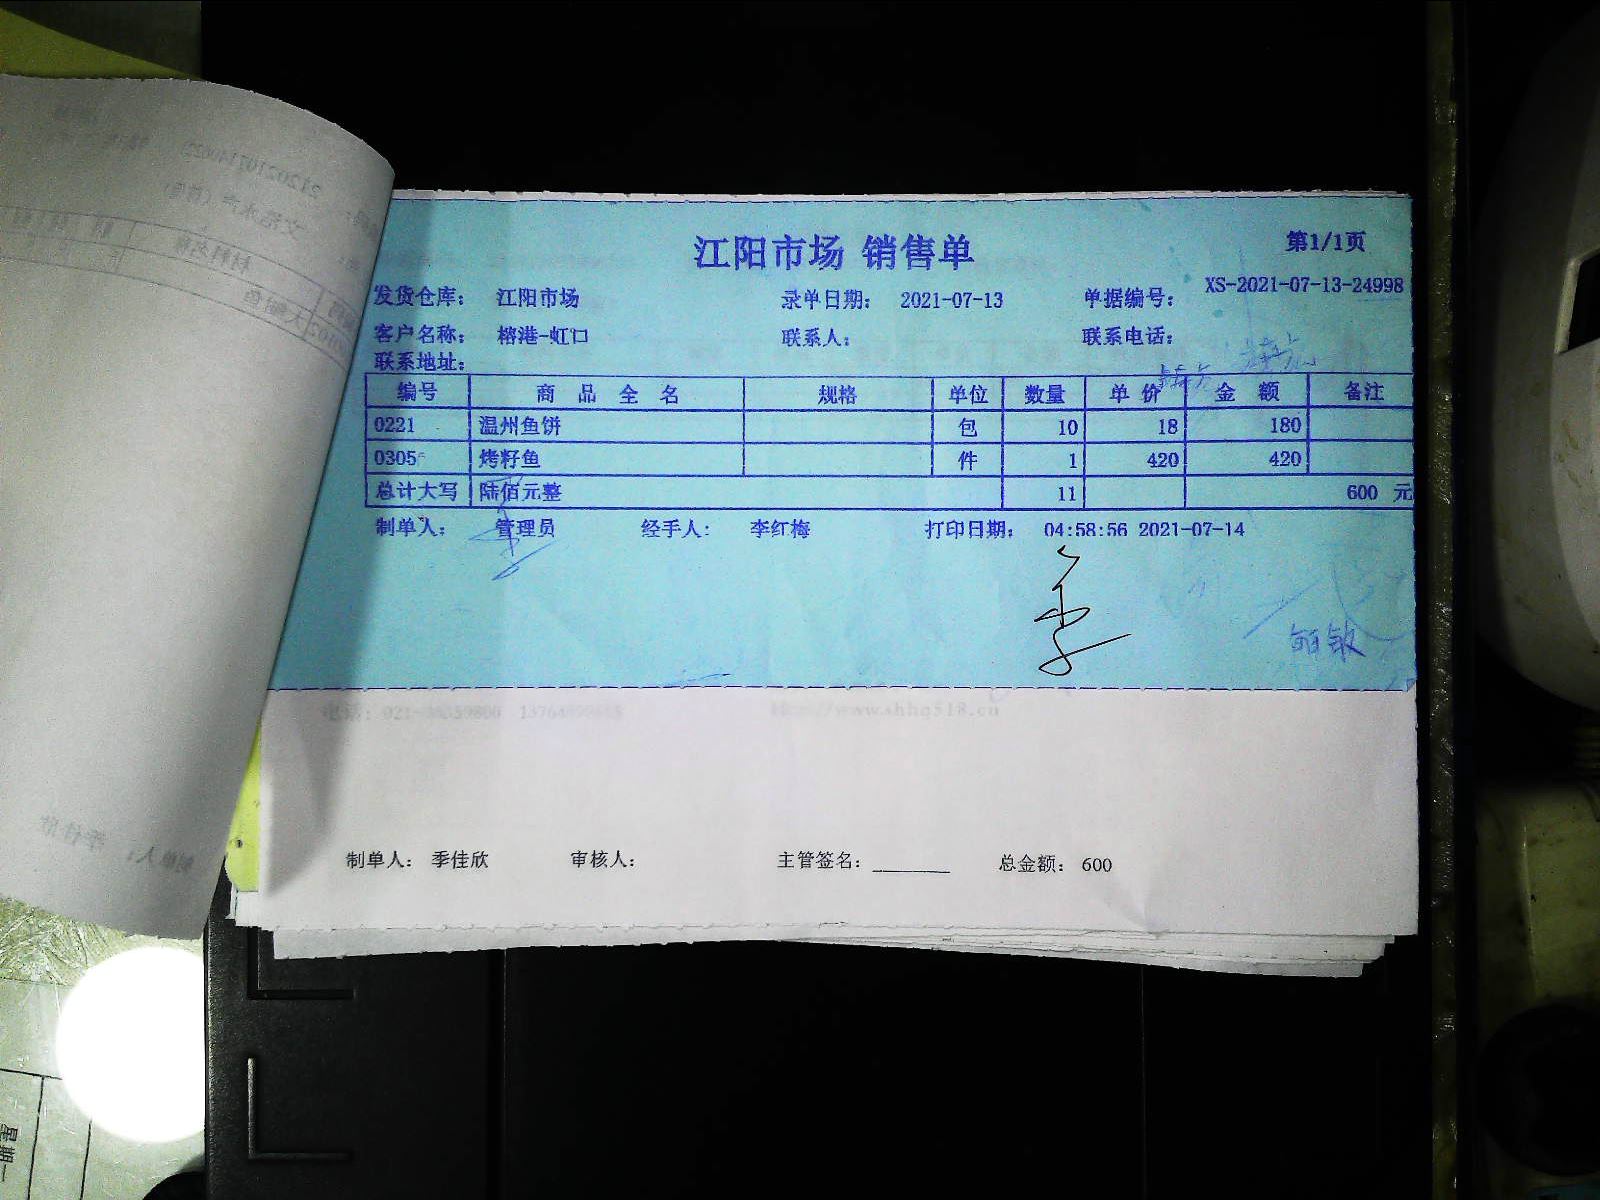 江阳市场 销售单
第1/1页
发货仓库： 江阳市场 录单日期： 2021-07-13 单据编号： XS-2021-07-13-24998
客户名称： 榕港-虹口 联系人： 联系电话：
联系地址：
编号 商品全名 规格 单位 数量 单价 金额 备注
0221 温州鱼饼 包 10 18 180
0305 烤籽鱼 件 1 420 420
总计大写 陆佰元整 11 600 元
制单人： 管理员 经手人： 李红梅 打印日期： 04:58:56 2021-07-14
制单人： 季佳欣 审核人： 主管签名： 总金额： 600